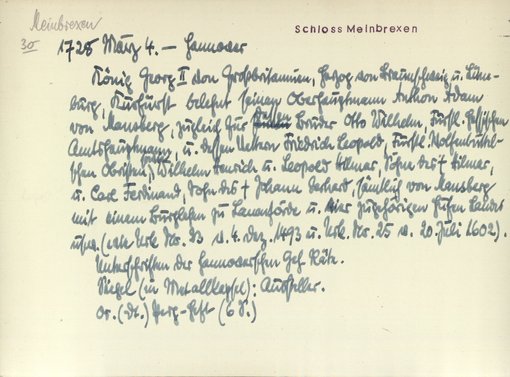 Meinbrexen
Schloss Meinbrexen
30
1728 März 4. — Hannover
König Georg II von Großbritannien, Herzog von Braunschweig u. Lüne-
burg, Kurfürst belehnt seinen Oberhauptmann Anthon Adam
von Mansberg, zugleich für Bruder Otto Wilhelm, Fürstl. Hessischen
Amtshauptmann, u. dessen Vettern Friedrich Leopold, Fürstl. Wolfenbüttel-
schen Obristen, Wilhelm Henrich u. Leopold Hilmar, Söhne des † Hilmar,
u. Carl Ferdinand, Sohn des † Johann Gerhard, sämtlich von Mansberg
mit einem Burglehen zu Lauenförde u. vier zugehörigen Hufen Landes
usw. (vgl. Urk. Nr. 13 v. 4. Dez. 1493 u. Urk. Nr. 25 v. 20. Juli 1602).
Unterschriften der hannoverschen Geh. Räte.
Siegel (in Metallkapsel): Aussteller.
Or. (dt.) Perg.-Heft (6 S.)